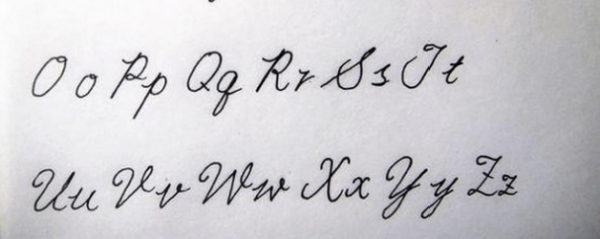 O o Pp Qq Rr Ss Tt
Uu Vv Ww Xx Yy Zz